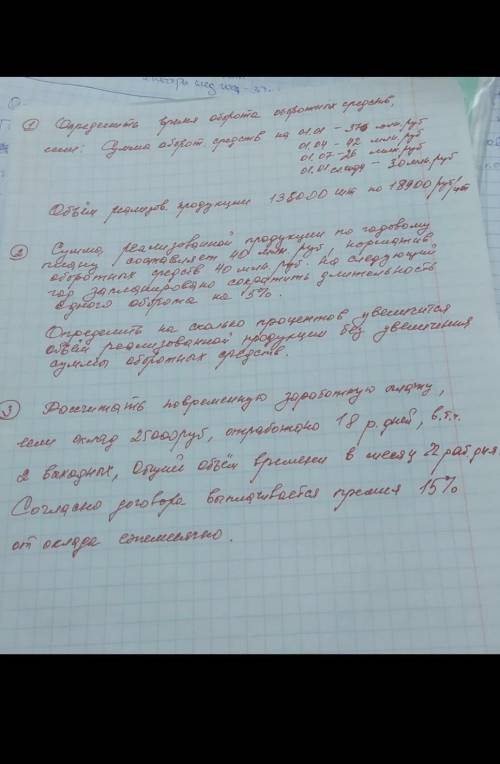 ① Определить время оборота оборотных средств,
если: Сумма оборот. средств на 01.01 - млн. руб
01.04 - 42 млн. руб
01.07 - 26 млн. руб
01.01 след - 30 млн. руб
Объём реализов. продукции 138000 шт по 18900 руб/шт
② Сумма реализованной продукции по годовому
плану составляет 40 млн. руб, норматив
оборотных средств 40 млн. руб. На следующий
год запланировано сократить длительность
одного оборота на 15%.
Определить на сколько процентов увеличится
объём реализованной продукции без увеличения
суммы оборотных средств.
③ Рассчитать повременную заработную плату,
если оклад 25000руб, отработано 18 р. дней, в.т.ч.
2 выходных, Общий объём времени в месяц 22 раб дня.
Согласно договора выплачивается премия 15%
от оклада ежемесячно.